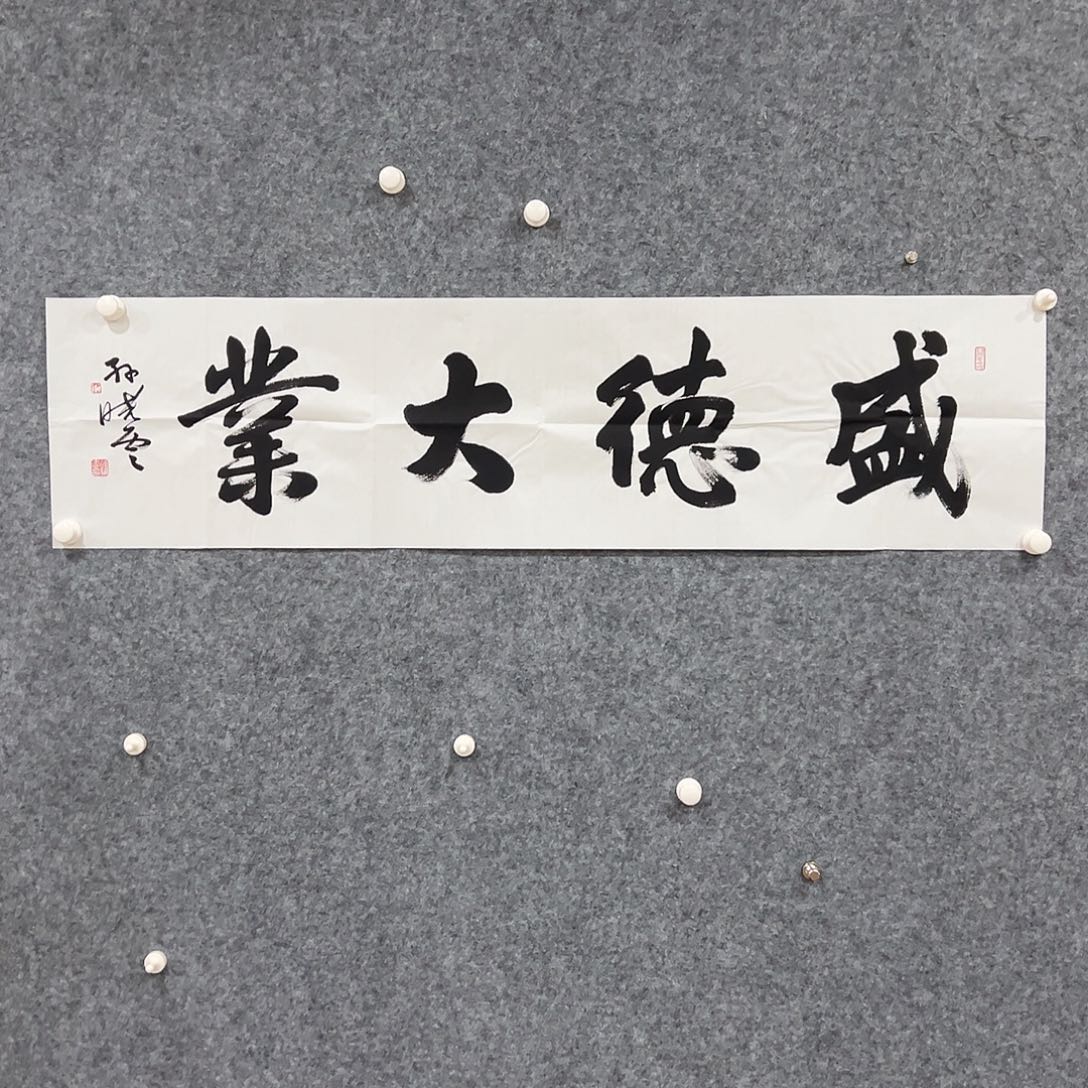 盛德大業
孙晓云